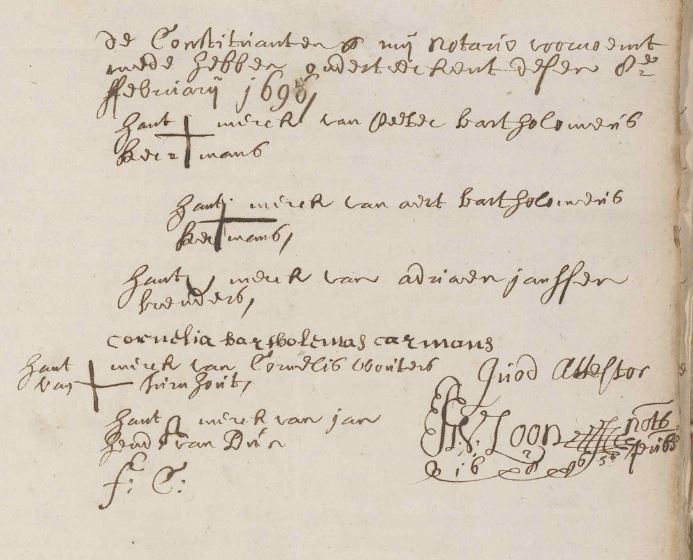 de Constituanten & mij Notario voornoemt
mede hebben onderteekent desen 8e
ffebruarij 1696,
hant merck van Peeter bartholomeus
Keermans
hant merck van aert bartholomeus
Keermans,
hant merck van adriaen janssen
benders,
cornelia bartholemeas carmans
hant merck van Cornelis wouters
van turnhout,
hant merck van jan
hend van Dús
f: C:
Quod Attestor
W. Loon nots
pub
1696